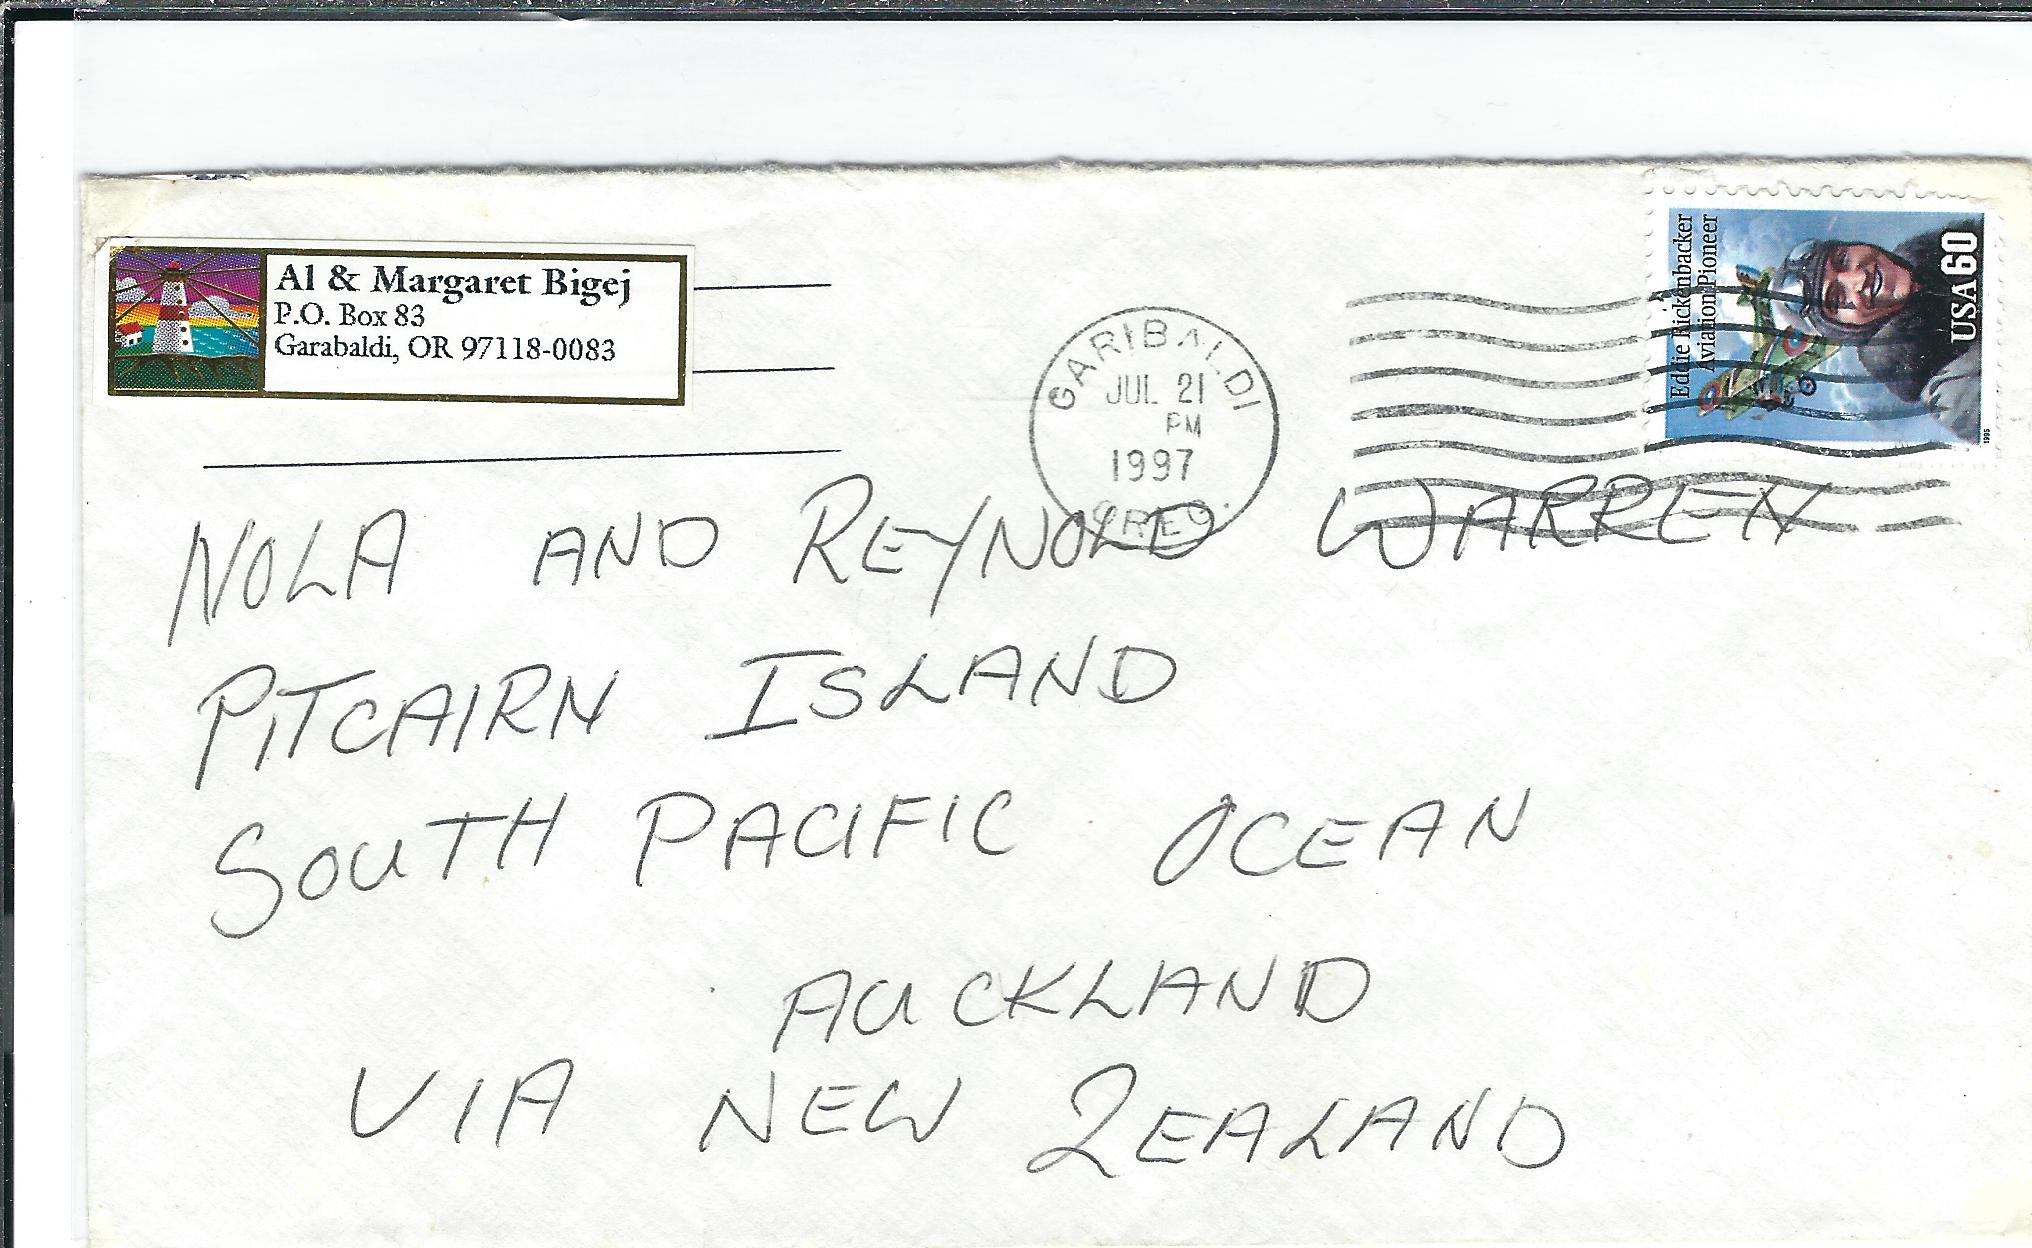 Al & Margaret Bigej
P.O. Box 83
Garabaldi, OR 97118-0083
GARIBALDI
JUL 21
PM
1997
OREG.
Eddie Rickenbacker
Aviation Pioneer
USA60
1995
NOLA AND REYNOLD WARREN
PITCAIRN ISLAND
SOUTH PACIFIC OCEAN
AUCKLAND
VIA NEW ZEALAND